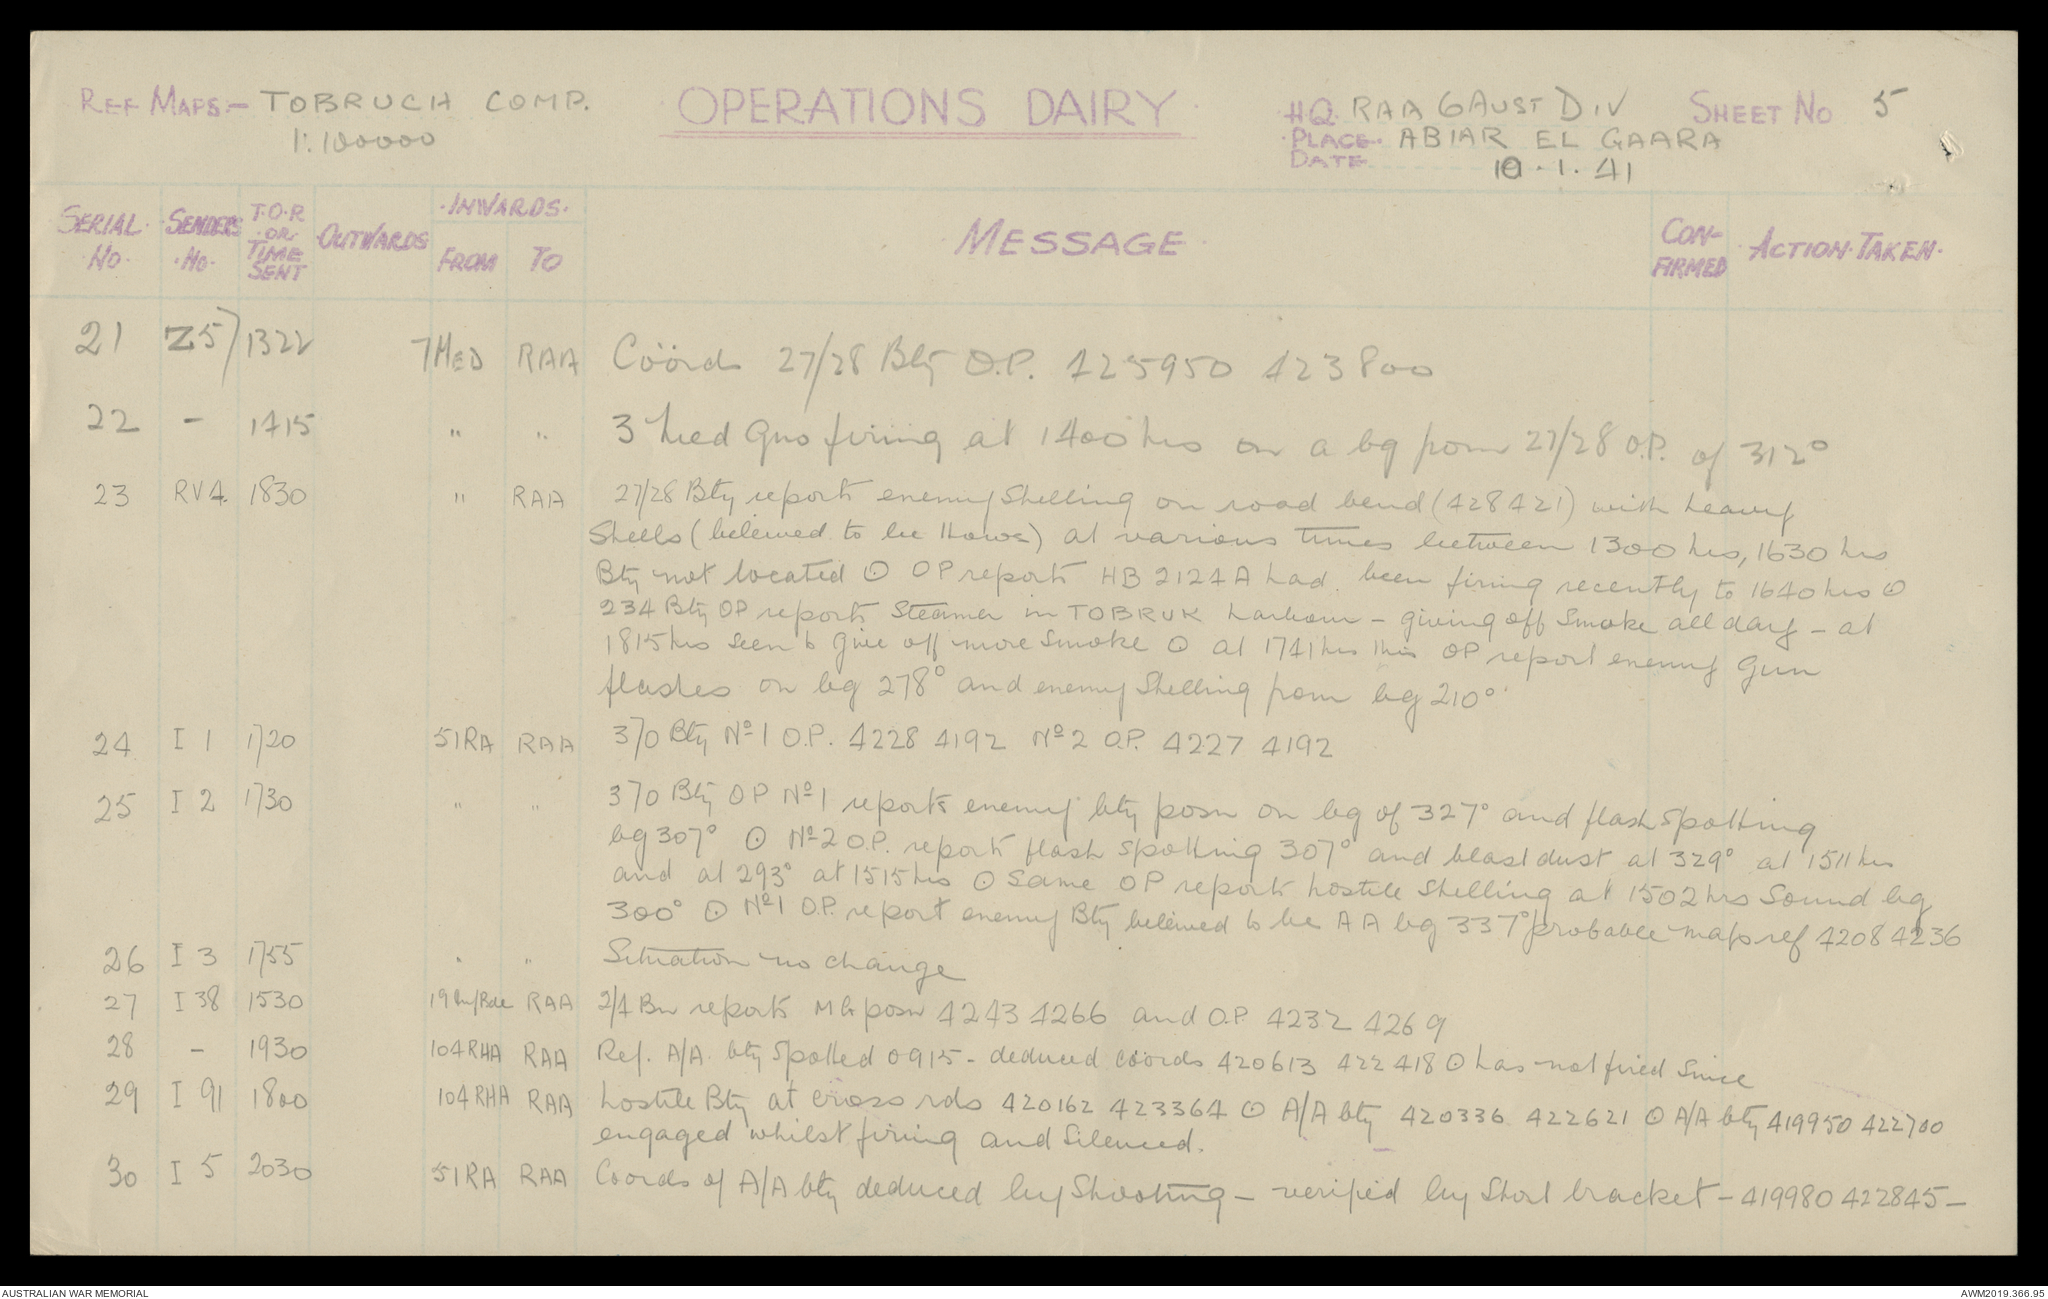 REF MAPS:- TOBRUCH COMP. OPERATIONS DAIRY HQ RAA 6 AUST DIV SHEET NO 5
1:100000 PLACE ABIAR EL GAARA
DATE 10.1.41
SERIAL NO. SENDERS NO. T.O.R OR TIME SENT OUTWARDS INWARDS FROM TO MESSAGE CON-FIRMED ACTION TAKEN
21 Z5 1322 7 MED RAA Coörds 27/28 Bty O.P. 425950 423800
22 - 1415 " " 3 Med Guns firing at 1400 hrs on a bg from 27/28 O.P. of 312°
23 RV4. 1830 " RAA 27/28 Bty reports enemy shelling on road bend (428421) with heavy
shells (believed to be Hows) at various times between 1300 hrs, 1630 hrs
Bty not located ⊙ OP reports HB 2124A had been firing recently to 1640 hrs ⊙
234 Bty OP reports Steamer in TOBRUK harbour - giving off smoke all day - at
1815 hrs seen to give off more smoke ⊙ at 1741 hrs this OP report enemy gun
flashes on bg 278° and enemy shelling from bg 210°
24 I 1 1720 51RA RAA 370 Bty No 1 O.P. 4228 4192 No 2 O.P. 4227 4192
25 I 2 1730 " " 370 Bty OP No 1 reports enemy bty posn on bg of 327° and flash spotting
bg 307° ⊙ No 2 O.P. reports flash spotting 307° and blast dust at 329° at 1511 hrs
and at 293° at 1515 hrs ⊙ Same OP reports hostile shelling at 1502 hrs Sound bg
300° ⊙ No 1 O.P. report enemy Bty believed to be AA bg 337° probable map ref 4208 4236
26 I 3 1755 " " Situation no change
27 I 38 1530 19 Inf Bde RAA 2/4 Bn reports MG posn 4243 4266 and O.P. 4232 4269
28 - 1930 104 RHA RAA Ref. A/A bty spotted 0915 - deduced coords 420613 422418 ⊙ has not fired since
29 I 91 1800 104 RHA RAA Hostile Bty at cross rds 420162 423364 ⊙ A/A bty 420336 422621 ⊙ A/A bty 419950 422700
engaged whilst firing and silenced.
30 I 5 2030 51RA RAA Coords of A/A bty deduced by shooting - verified by short bracket - 419980 422845 -
AUSTRALIAN WAR MEMORIAL AWM2019.366.95